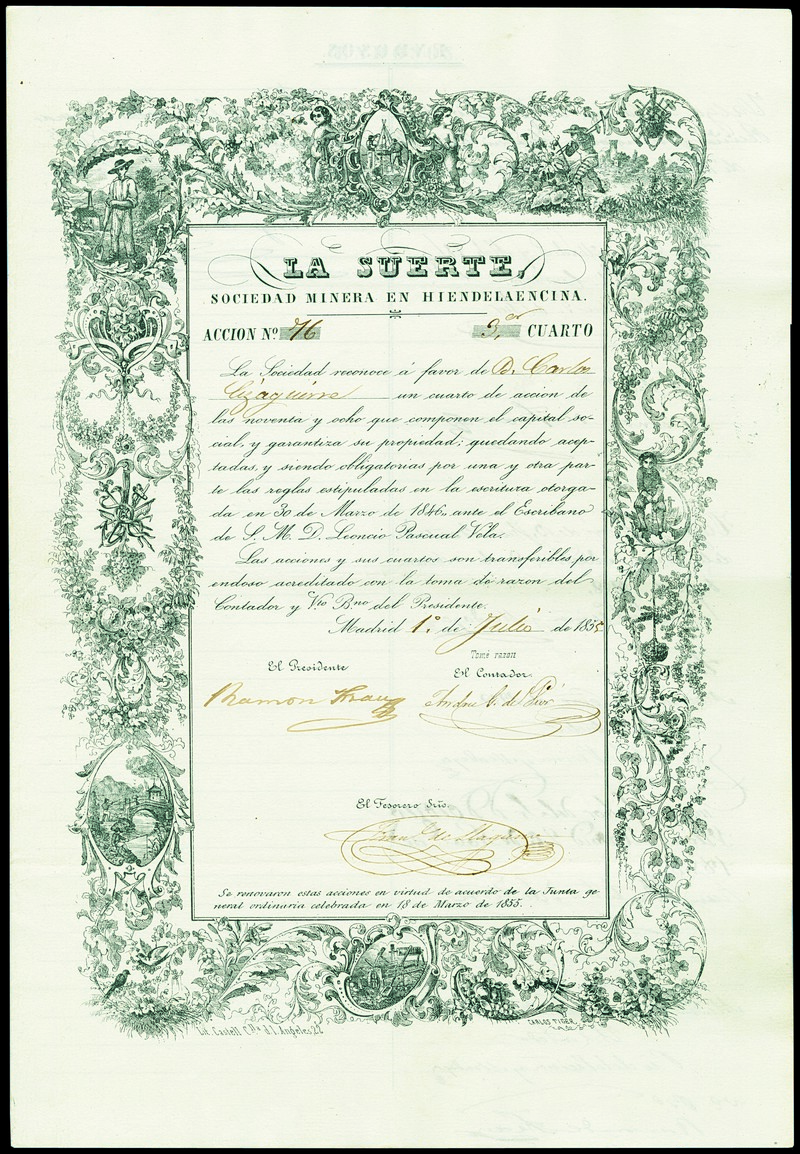 LA SUERTE,
SOCIEDAD MINERA EN HIENDELAENCINA.
ACCION Nº 76 3,er CUARTO
La Sociedad reconoce á favor de D. Carlos
un cuarto de accion de
las noventa y ocho que componen el capital so-
cial, y garantiza su propiedad; quedando acep-
tadas, y siendo obligatorias por una y otra par-
te las reglas estipuladas en la escritura otorga-
da en 30 de Marzo de 1846, ante el Escribano
de S. M. D. Leoncio Pascual Vela.
Las acciones y sus cuartos son transferibles por
endoso acreditado con la toma de razon del
Contador y Vto. Bno. del Presidente.
Madrid 1º de Julio de 1855
Tomé razon
El Presidente
El Contador.
Ramon
El Tesorero Srio.
Se renovaron estas acciones en virtud de acuerdo de la Junta ge
neral ordinaria celebrada en 18 de Marzo de 1855.
Lit. Castell C. Angeles
CARLOS